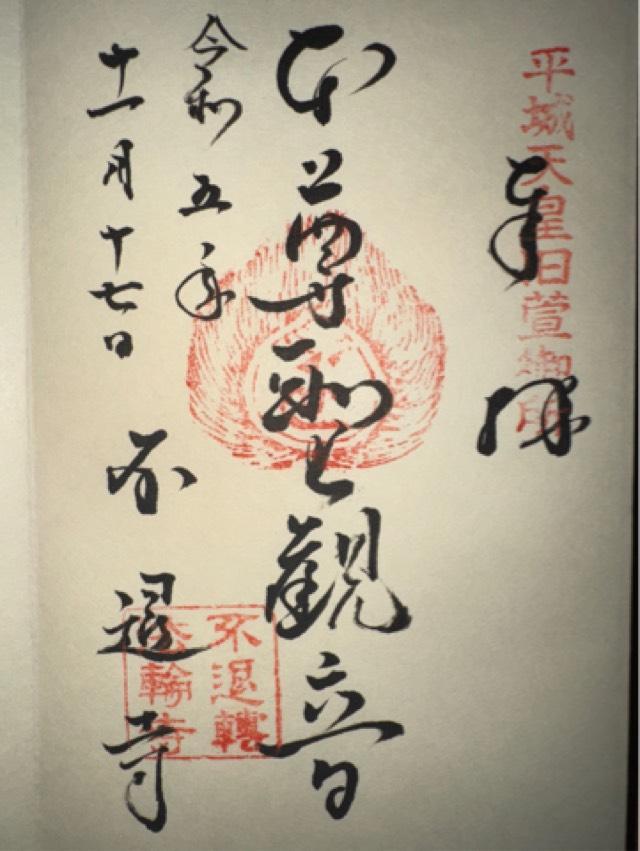 平城天皇旧萱御所
奉拝
本尊聖観音
令和五年
十一月十七日
不退寺
不退轉
法輪寺